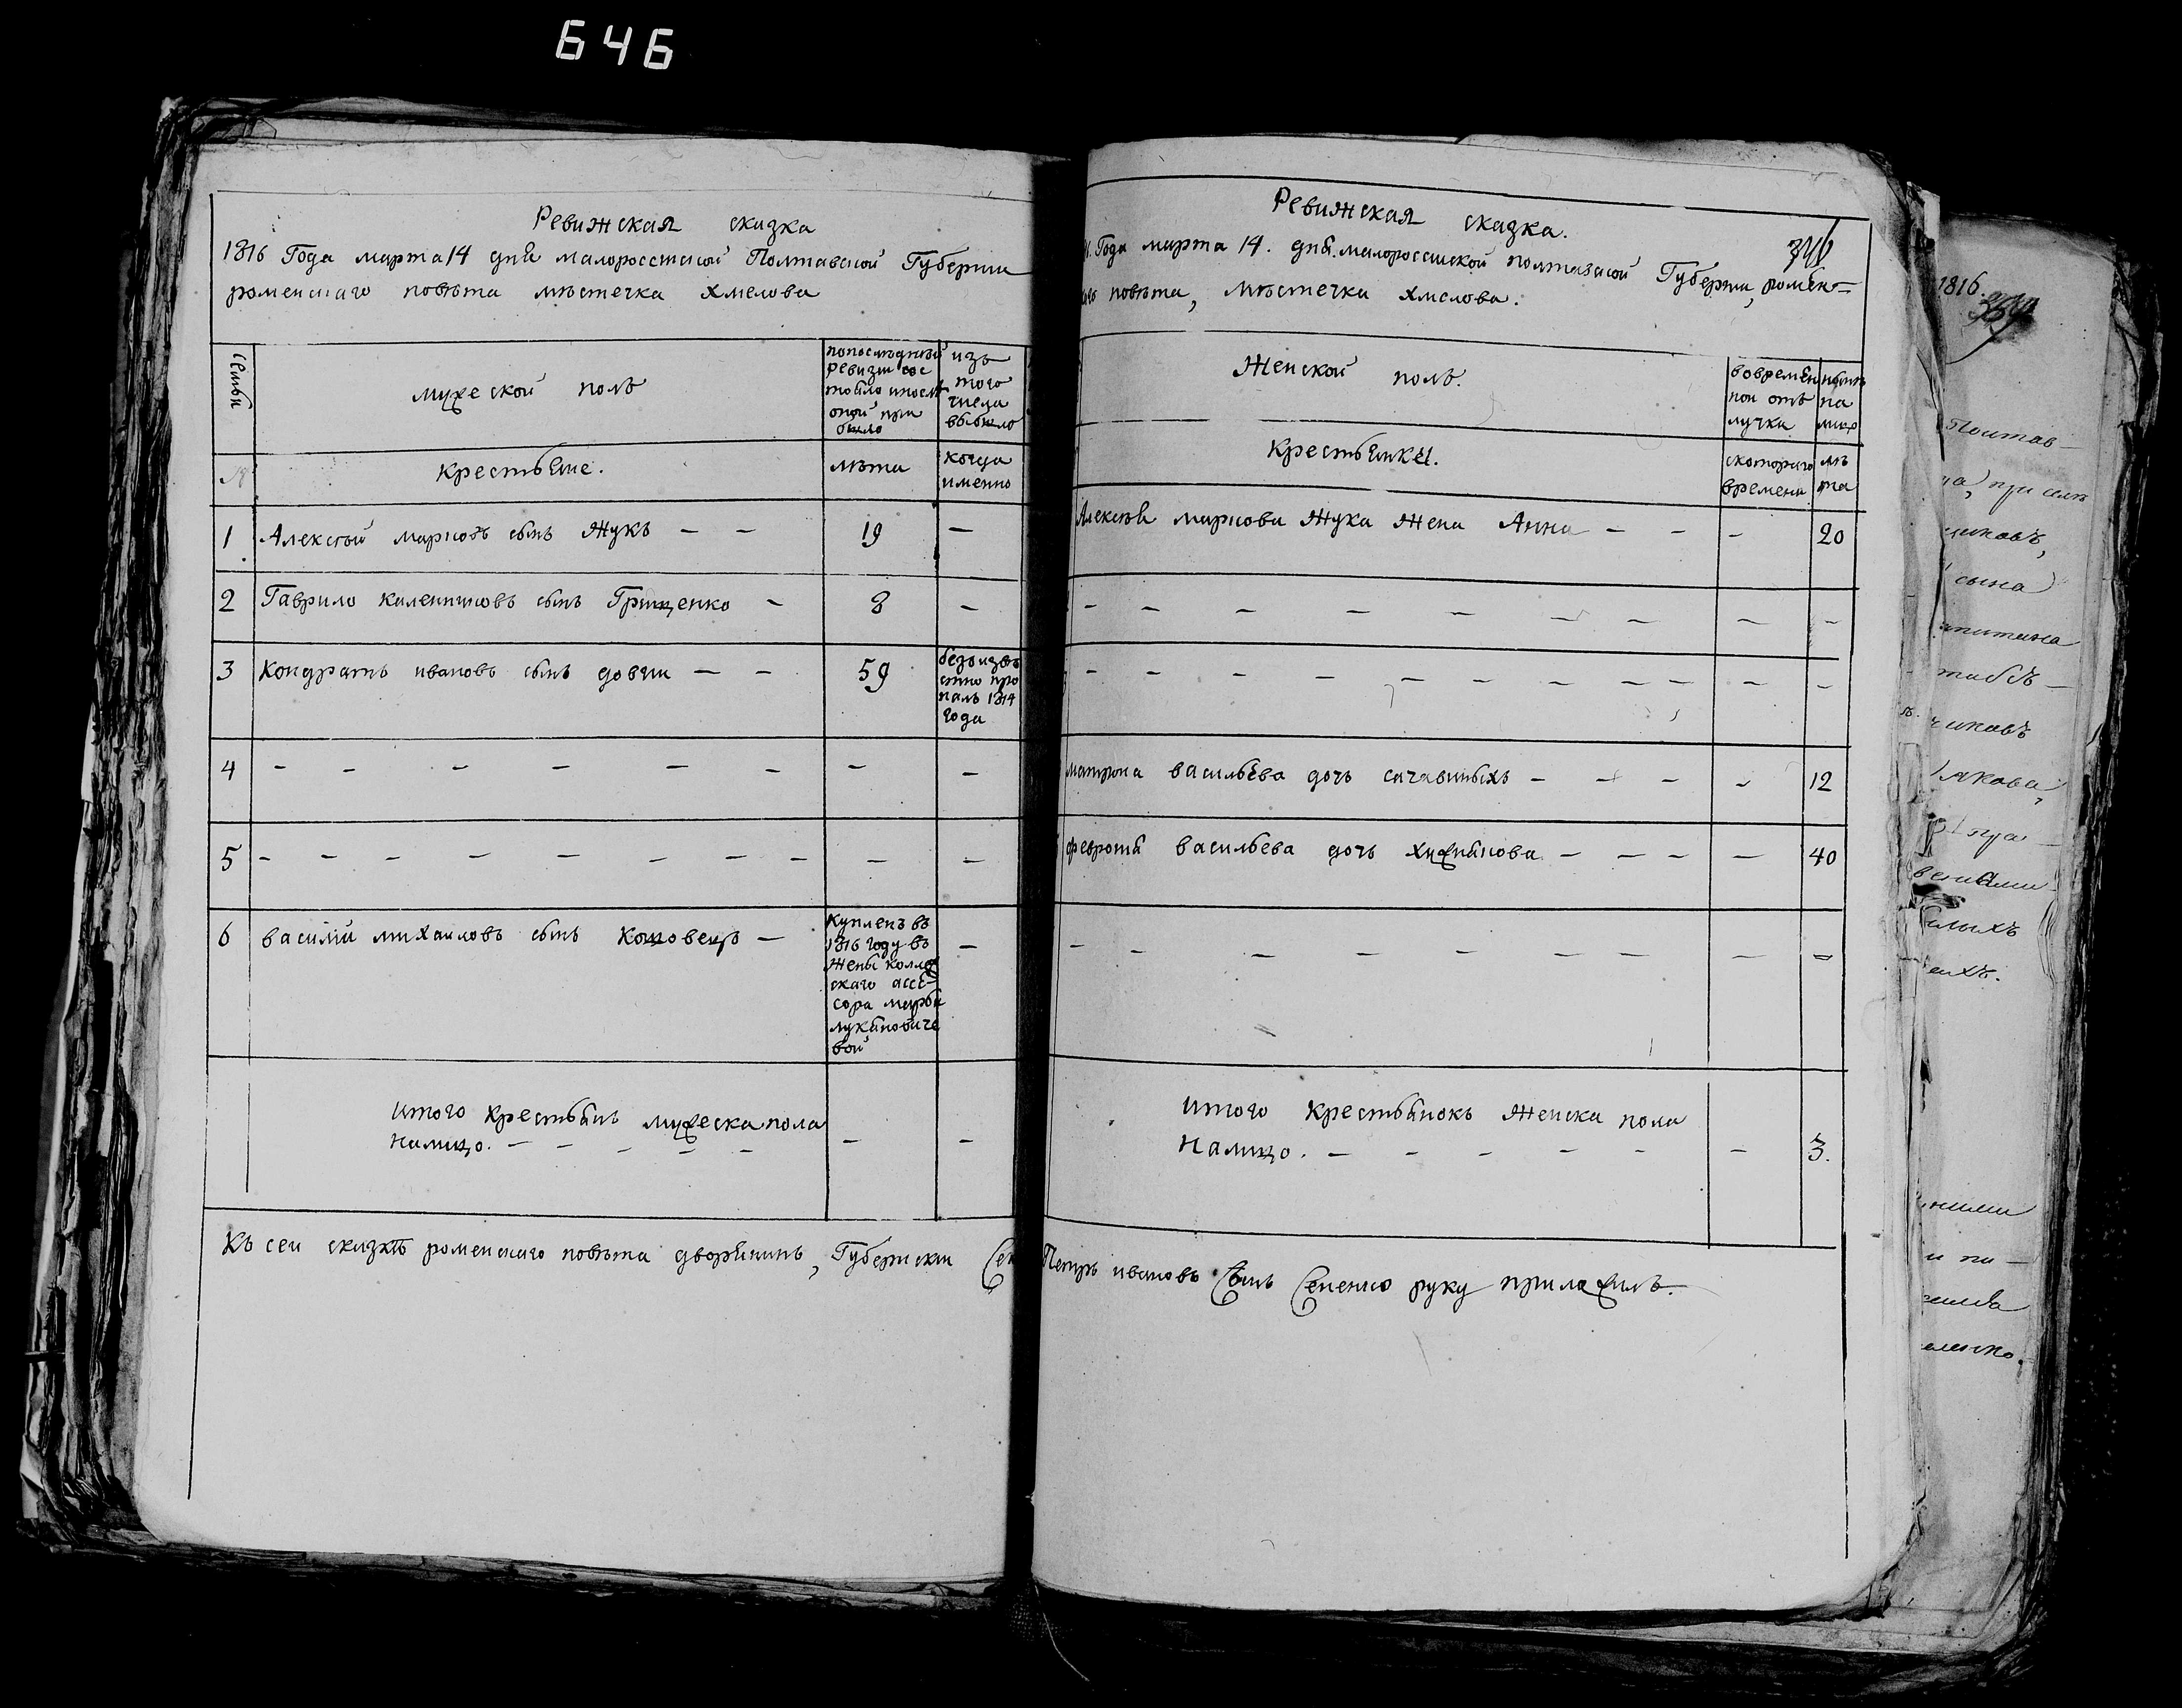 646
Ревижская сказка
1816 Года марта 14 дня малоросстской Полтавской Губернии
роменскаго повѣта мѣстечка Хмелова
семьи
мужеской полъ
попослѣдней
ревизии сос
тояло ипослѣ
оной при
было
изъ
того
числа
выбыло
№
Крестьяне.
лѣта
когда
именно
1 Алексѣй марковъ сынъ Жукъ — — 19 —
2 Гаврило калениковъ сынъ Грищенко — 8 —
3 Кондратъ ивановъ сынъ довгии — — 59
безъизвѣ
стно про
палъ 1814
года
4 — — — — — — — —
5 — — — — — — — — — —
6 василий михаиловъ сынъ Кошовецъ — —
Купленъ въ
1816 году въ
жены коллеж
скаго ассе-
сора марьи
лукяновиче
вой
итого крестьянъ мужеска пола
налицо. — — — — — — —
Къ сеи сказкѣ роменскаго повѣта дворянинъ, Губернскии Сек
Ревижская сказка.
Года марта 14. дня. малороссииской полтавской Губернии, ромен-
повѣта, мѣстечка хмелова.
Женской полъ.
вовремен
нои отъ
лучки
нынѣ
на
лицо
Крестьянки.
скотораго
времени
лѣ
та
Алексѣя маркова Жука жена Анна — — — 20
— — — — — — — — —
— — — — — — — — — — —
матрона васильева дочь сачавиныхъ — — — — 12
феврония васильева дочь хижнякова — — — — 40
— — — — — — — — —
итого крестьянокъ женска пола
налицо. — — — — — — 3.
Петръ ивановъ Сынъ Сененко руку приложилъ.
1816.
Полтав
при селѣ
сына
чиковъ
якова,